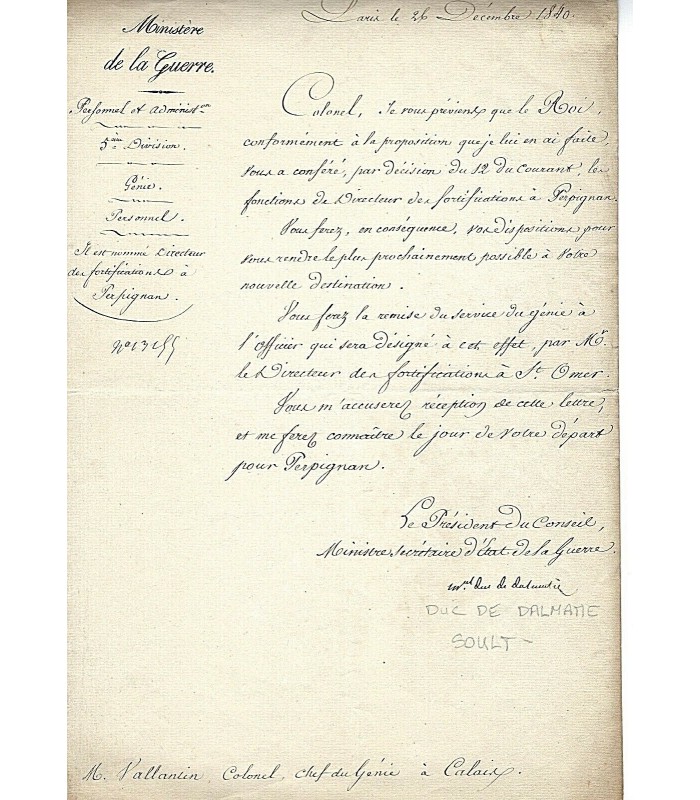 Paris le 26 Décembre 1840.
Ministère
de la Guerre.
Personnel et Administ.on
5ème Division.
Génie.
Personnel.
Il est nommé Directeur
des fortifications à
Perpignan.
Colonel, Je vous préviens que le Roi,
conformément à la proposition que je lui en ai faite,
vous a conféré, par décision du 12 du Courant, les
fonctions de Directeur des fortifications à Perpignan.
Vous ferez, en conséquence, vos dispositions pour
vous rendre le plus prochainement possible à votre
nouvelle destination.
Vous ferez la remise du service du génie à
l'Officier qui sera désigné à cet effet, par Mr.
le Directeur des fortifications à St. Omer.
Vous m'accuserez réception de cette lettre,
et me ferez connaître le jour de votre départ
pour Perpignan.
Le Président du Conseil,
Ministre, Secrétaire d'État de la Guerre.
Mal duc de dalmatie
DUC DE DALMATIE
SOULT -
M. Vallantin Colonel, chef du Génie à Calais.